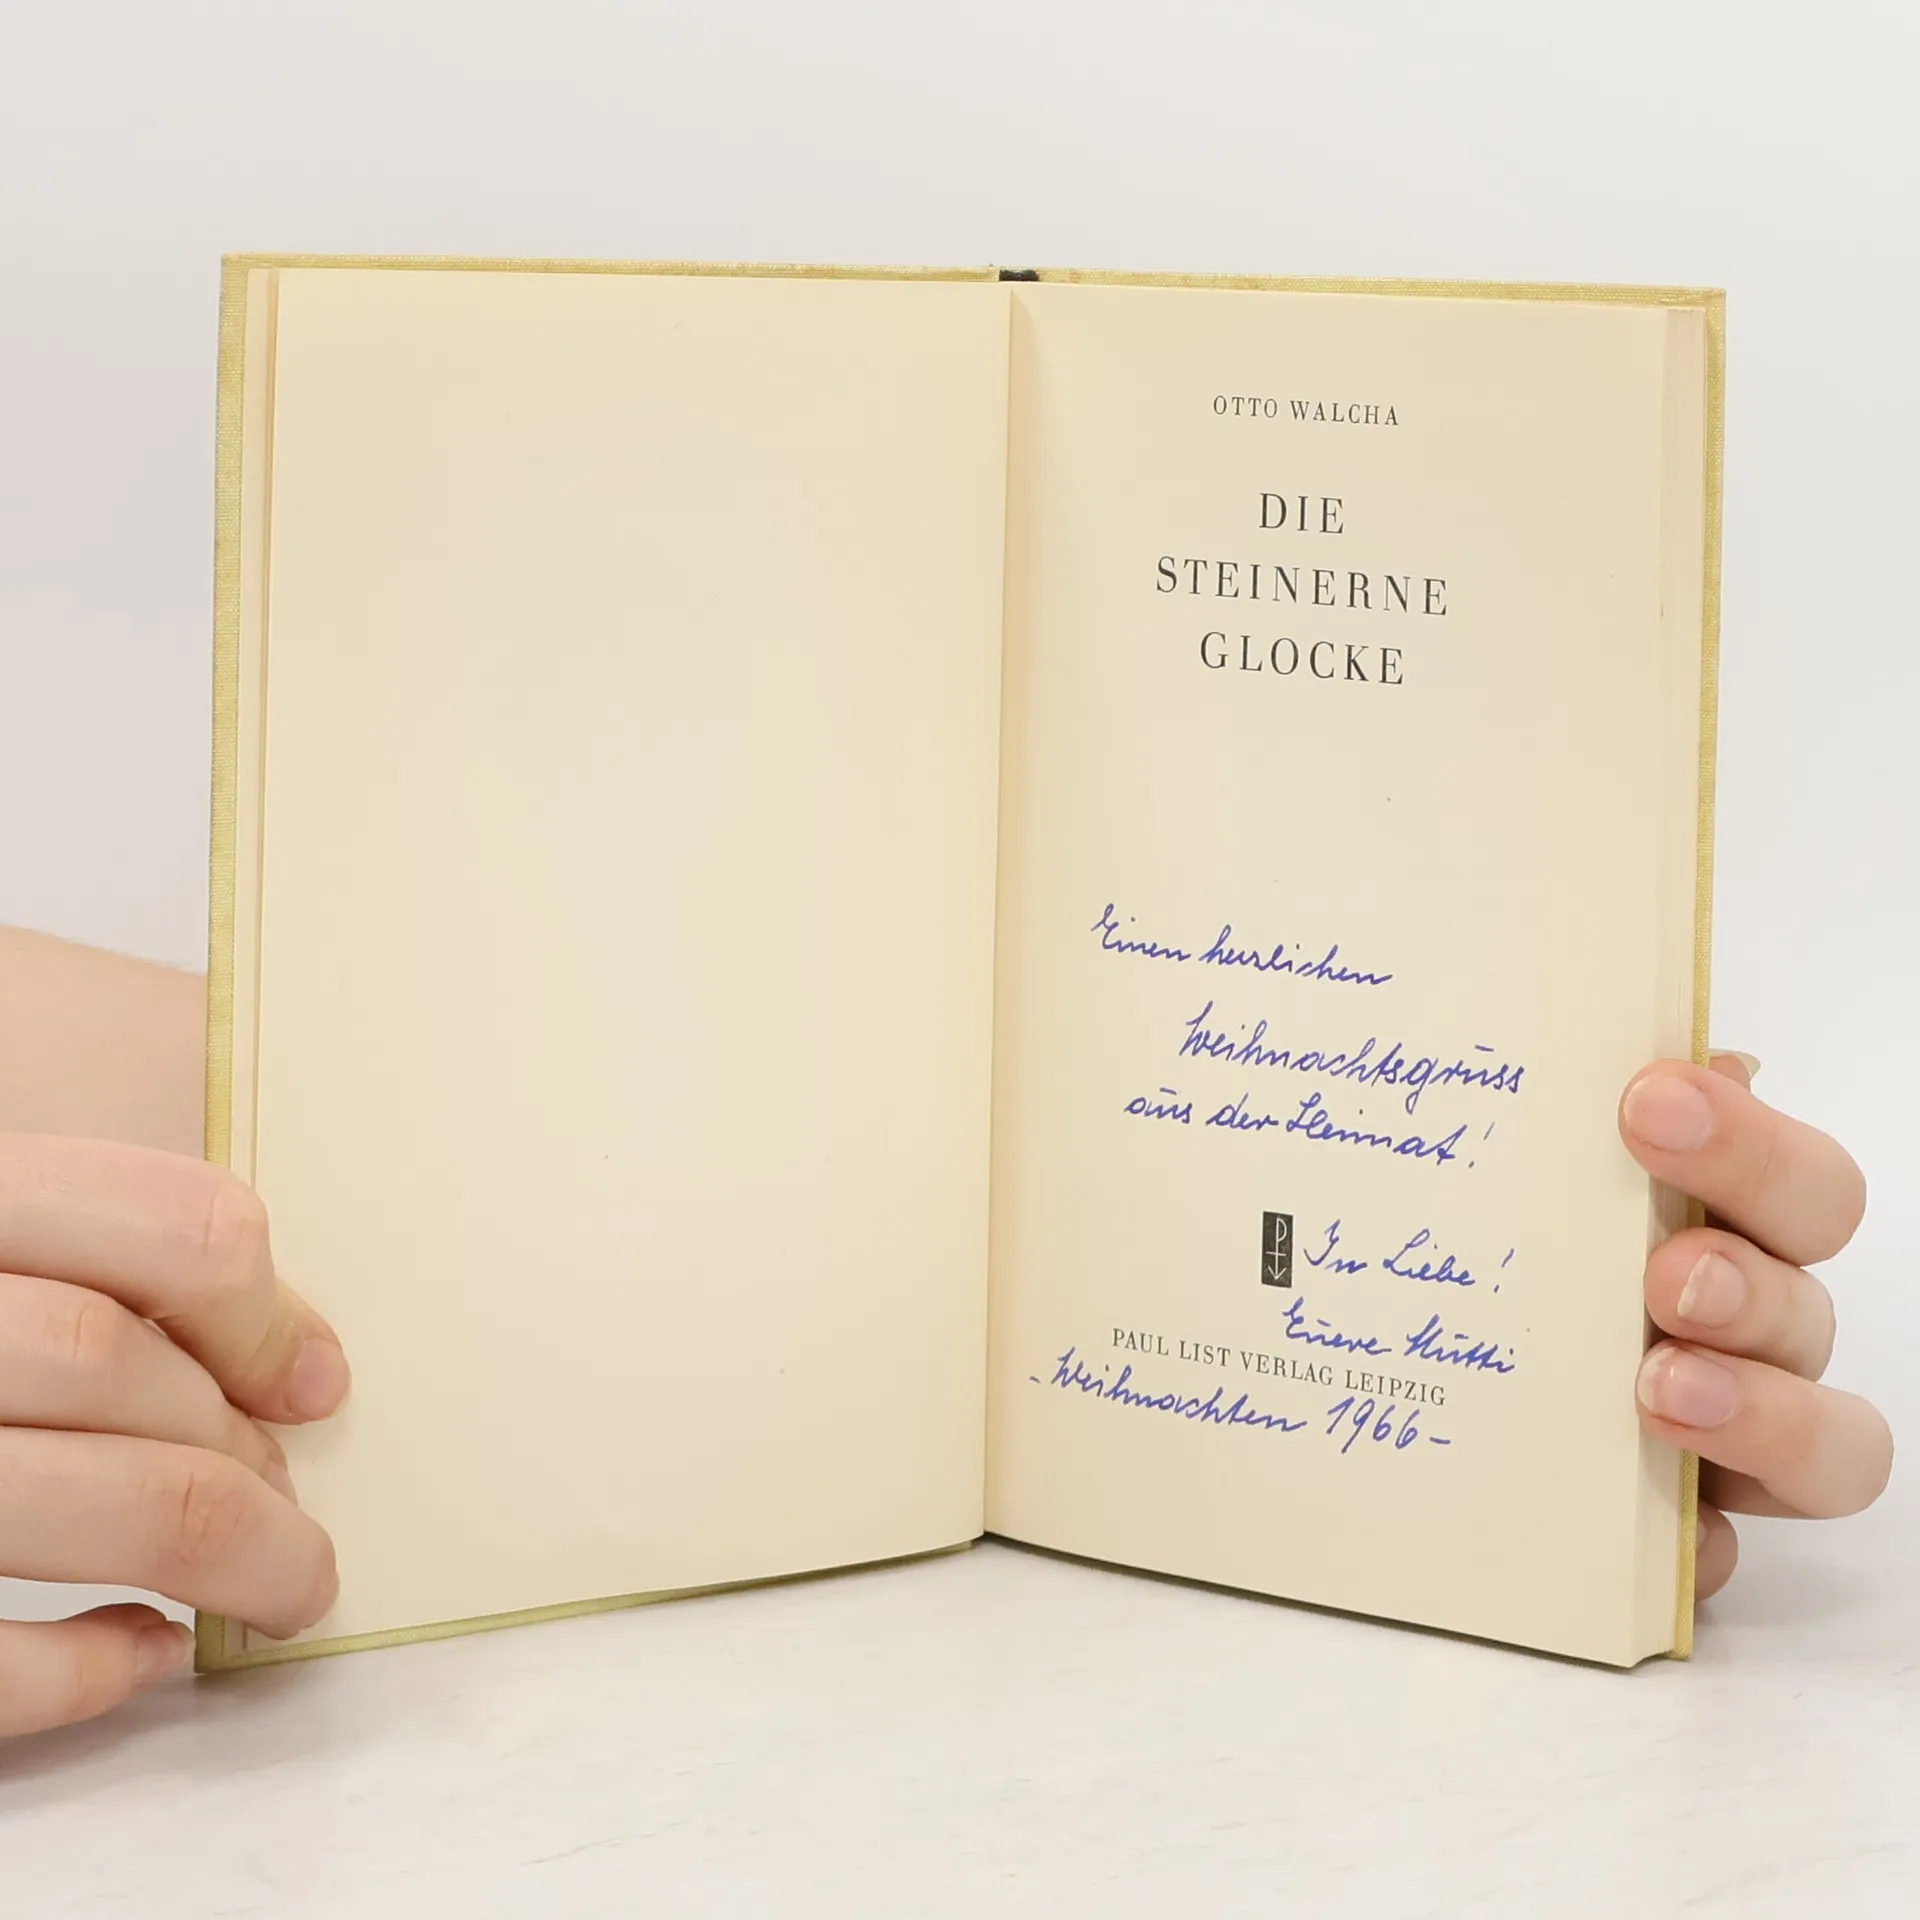 OTTO WALCHA
DIE
STEINERNE
GLOCKE
Einen herzlichen
Weihnachtsgruss
aus der Heimat!
In Liebe!
Euere Mutti
PAUL LIST VERLAG LEIPZIG
- Weihnachten 1966 -